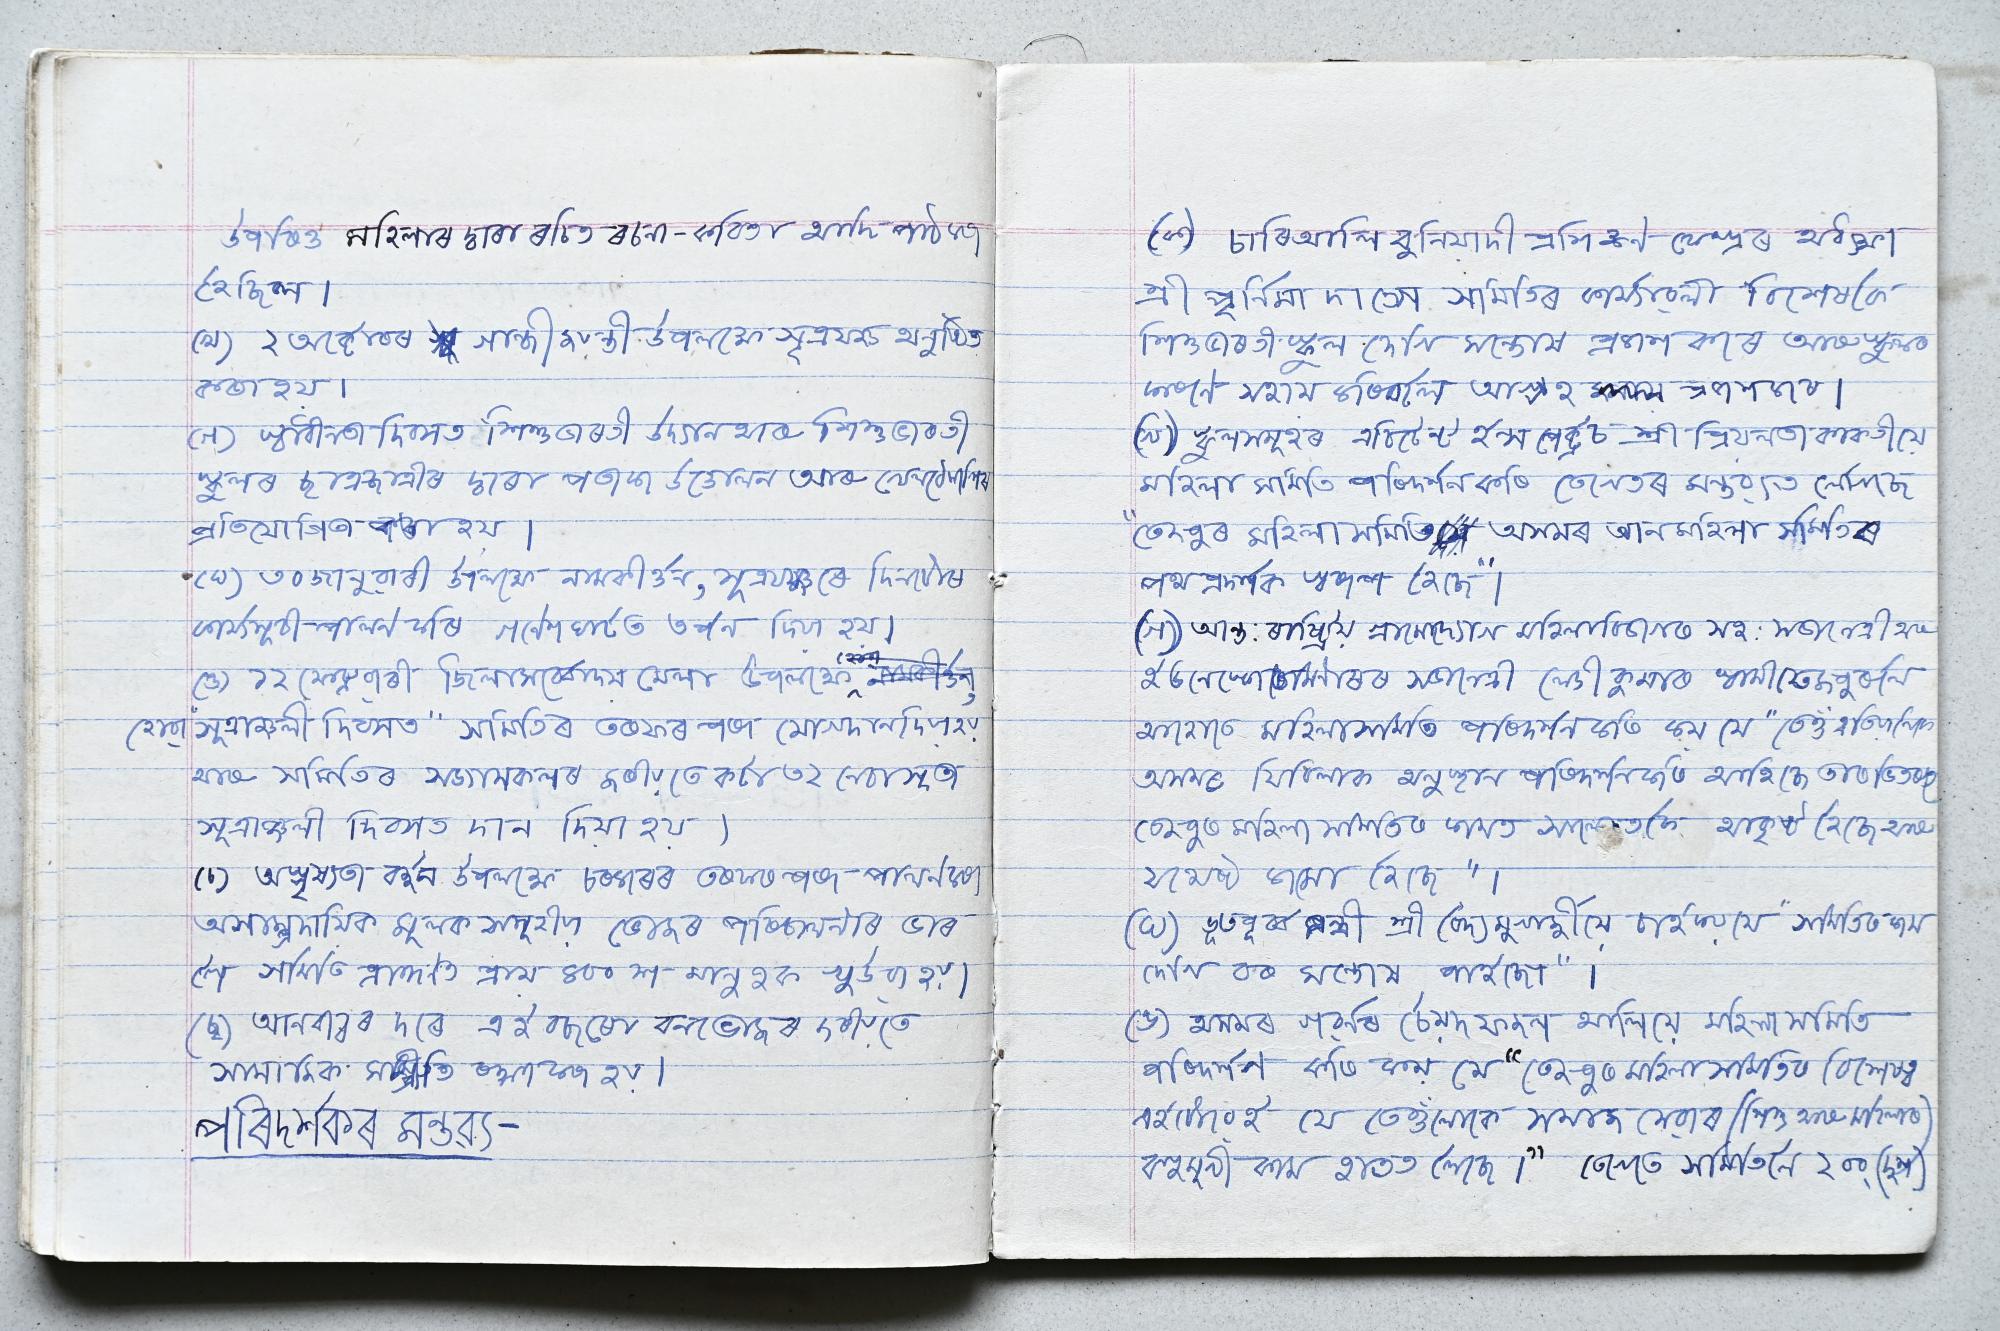 উপস্থিত মহিলাৰ দ্বাৰা ৰচিত ৰচনা-কবিতা আদি পাঠ কৰা
হৈছিল।
(খ) ২ অক্টোবৰ গান্ধী জয়ন্তী উপলক্ষে সূত্ৰযজ্ঞ অনুষ্ঠিত
কৰা হয়।
(গ) স্বাধীনতা দিৱসত শিশুভাৰতী উদ্যান আৰু শিশুভাৰতী
স্কুলৰ ছাত্ৰছাত্ৰীৰ দ্বাৰা পতাকা উত্তোলন আৰু খেলধেমালিৰ
প্ৰতিযোগিতা কৰা হয়।
(ঘ) ৩০ জানুৱাৰী উপলক্ষে নামকীৰ্ত্তন, সূত্ৰযজ্ঞৰে দিনযোৰা
কাৰ্য্যসূচী পালন কৰি গণেশঘাটত তৰ্পন দিয়া হয়।
(ঙ) ১২ ফেব্ৰুৱাৰী জিলা সৰ্ব্বোদয় মেলা উপলক্ষে
হোৱা "সূত্ৰাঞ্জলী দিৱসত" সমিতিৰ তৰফৰ পৰা যোগদান দিয়া হয়
আৰু সমিতিৰ সভ্যাসকলৰ জৰীয়তে কটা ৩২ লেচা সূতা
সূত্ৰাঞ্জলী দিৱসত দান দিয়া হয়।
(চ) অস্পৃশ্যতা বৰ্জ্জন উপলক্ষে চৰকাৰৰ তৰফৰ পৰা পালন কৰা
অসাম্প্ৰদায়িক মূলক সমূহীয়া ভোজৰ পৰিচালনাৰ ভাৰ
লৈ সমিতি প্ৰাঙ্গনত প্ৰায় ৪০০ শ মানুহক খুউৱা হয়।
(ছ) আনবাৰৰ দৰে এই বছৰো বনভোজৰ জৰীয়তে
সামাজিক সম্প্ৰীতি ৰক্ষা কৰা হয়।
পৰিদৰ্শকৰ মন্তব্য-
(ক) চাৰিআলি বুনিয়াদী প্ৰশিক্ষণ কেন্দ্ৰৰ অধ্যক্ষা
শ্ৰী পূৰ্ণিমা দাসে সমিতিৰ কাৰ্য্যাৱলী বিশেষকৈ
শিশুভাৰতী স্কুল দেখি সন্তোষ প্ৰকাশ কৰে আৰু স্কুলৰ
কাৰণে সহায় কৰিবলৈ আগ্ৰহ প্ৰকাশ কৰে।
(খ) স্কুলসমূহৰ এচিটেন্ট ইন্সপেক্ট্ৰচ শ্ৰী প্ৰিয়লতা কাকতীয়ে
মহিলা সমিতি পৰিদৰ্শন কৰি তেখেতৰ মন্তব্যত লেখিছে
"তেজপুৰ মহিলা সমিতি অসমৰ আন মহিলা সমিতিৰ
পথ প্ৰদৰ্শক স্বৰূপ হৈছে"।
(গ) আন্তঃৰাষ্ট্ৰিয় গ্ৰামোদ্যোগ মহিলা বিভাগৰ সহঃ সভানেত্ৰী আৰু
সভানেত্ৰী লেডী কুমাৰ স্বামী তেজপুৰলৈ
আহোতে মহিলা সমিতি পৰিদৰ্শন কৰি কয় যে
অসমৰ যিবিলাক অনুষ্ঠান পৰিদৰ্শন কৰি আহিছে তাৰ ভিতৰত
তেজপুৰ মহিলা সমিতিৰ কামত আকৃষ্ট হৈছে আৰু
হৈছে"।
(ঘ) ভূতপূৰ্ব্ব মন্ত্ৰী শ্ৰী বৈদ্য মুখাৰ্জীয়ে চাই কয় যে "সমিতিৰ কাম
দেখি বৰ সন্তোষ পাইছো"।
(ঙ) অসমৰ গৱৰ্ণৰ চৈয়দ ফজল আলিয়ে মহিলা সমিতি
পৰিদৰ্শন কৰি কয় যে "তেজপুৰ মহিলা সমিতিৰ বিশেষত্ব
যে তেওঁলোকে সমাজ সেৱাৰ (শিশু আৰু মহিলাৰ)
বহুমুখী কাম হাতত লৈছে।" তেখেতে সমিতিলৈ ২০০ (দুশ)